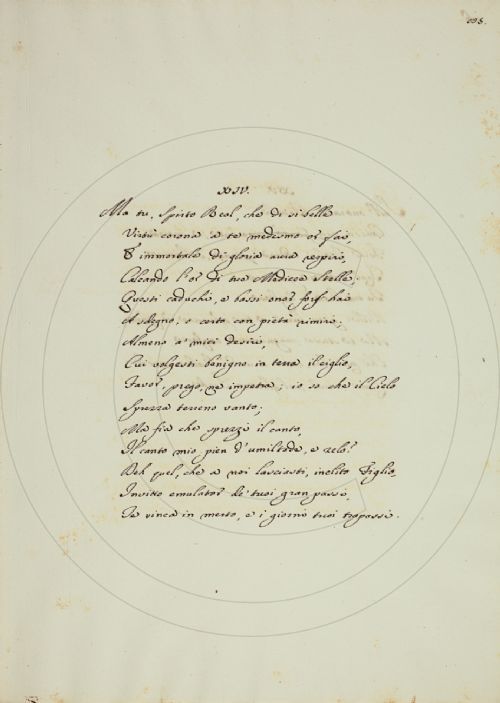 XIV.
Ma tu, Spirto Real, che di sì belle
Virtù corona a te medesmo or fai,
E immortale di gloria aura respiri,
Calcando l'or di tue Medicee Stelle;
Questi caduchi, e bassi onor fors' hai
A sdegno; o certo con pietà rimiri;
Almeno a' miei desiri,
Cui volgesti benigno in terra il ciglio,
Favor, prego, ne impetra; io so che il Cielo
Sprezza terreno vanto;
Ma fia che sprezzi il canto,
Il canto mio pien d'umiltade, e zelo?
Deh quel, che a noi lasciasti, inclito Figlio,
Invitto emulator de' tuoi gran passi,
Te vinca in merto, e i giorni tuoi trapassi.